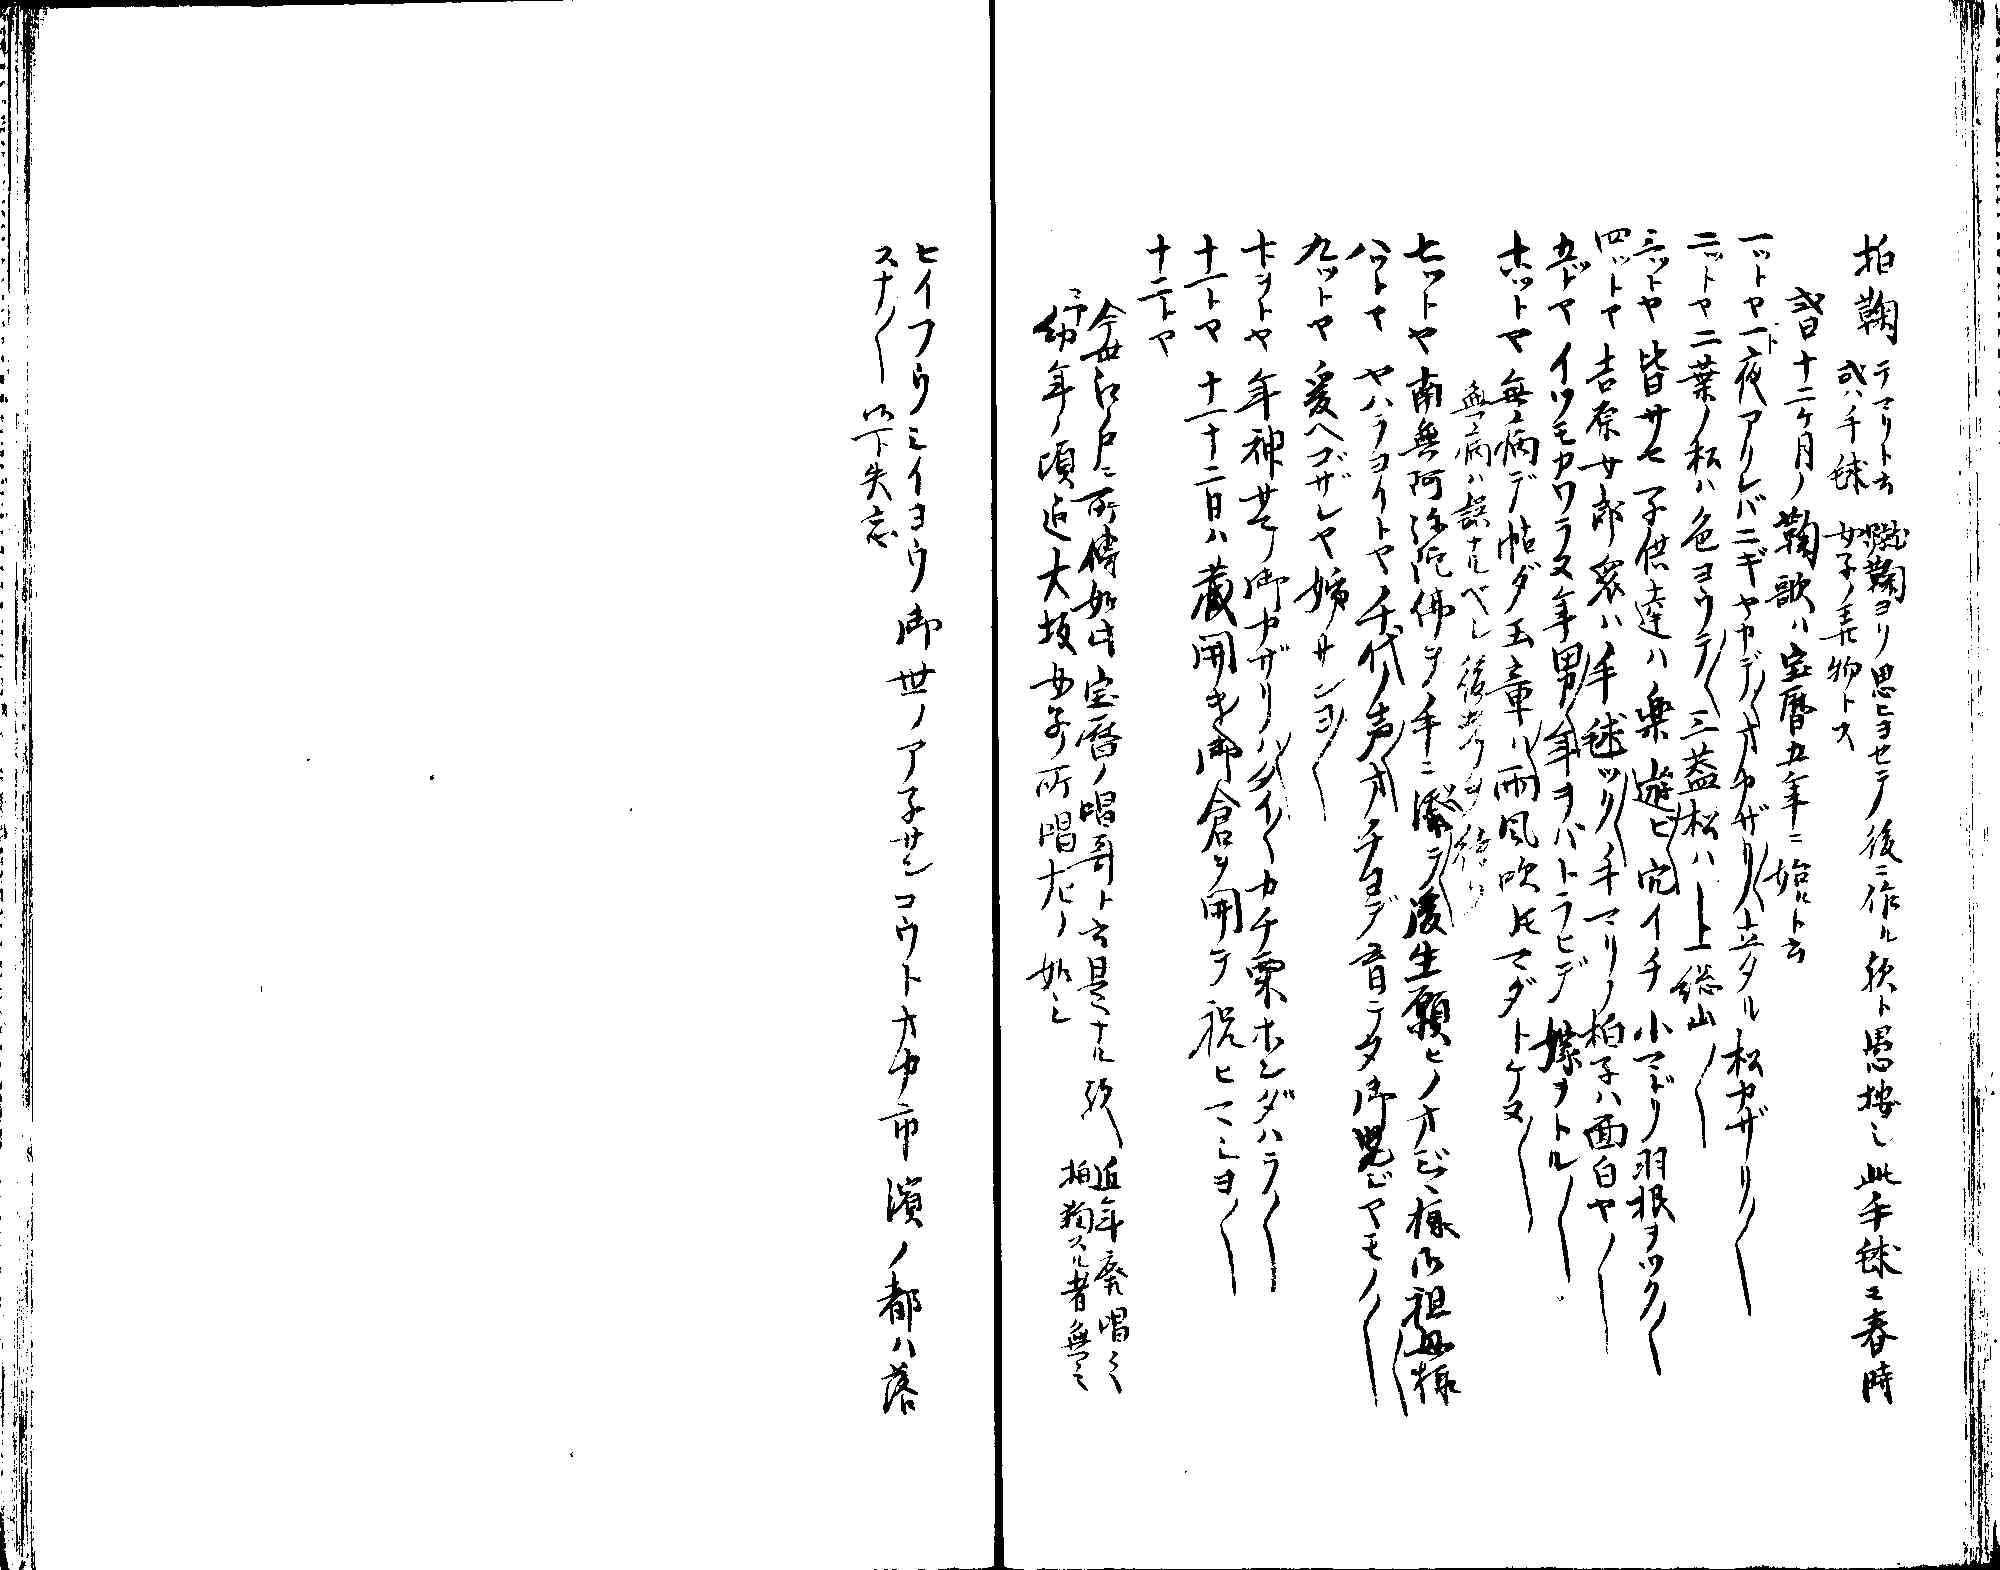 拍鞠 テマリト云 蹴鞠ヨリ思ヒヨセテノ後ニ作ル欤ト愚按ニ此手毬ニ春時
或ハ手毬 女子ノ弄物トス
或曰十二ケ月ノ鞠歌ハ宝暦五年ニ始ルト云
一ットヤ一ト夜アクレバニギヤカデ〱オカザリ〱立タル松カザリ〱
二ットヤ二葉ノ松ハ色ヨウテ〱三蓋松ハ上総山〱
三ットヤ皆サセ子供達ハ楽遊ビ〱穴イチ小マドリ羽根ヲツク〱
四ットヤ吉原女郎衆ハ手毬ツク〱手マリノ拍子ハ面白ヤ〱
五ットヤイツモカワラヌ年男〱年ヲバトラヒデ嫁ヲトル〱
六ットヤ無病デ帖ダ玉章ハ〱雨風吹ドモマダトケヌ〱
無病ハ誤ナルベシ後考ヲ待ツ
七ットヤ南無阿弥陀佛ヲ手ニ添テ〱後生願ヒノオヂヾ様御祖母様〱
八ットヤヤハラヨイトヤノ千代ノ声〱オチヨデ育ニタ御児ジヤモノ〱
九ットヤ爰ヘゴザレヤ姉サンヨ〱
十ヲトヤ年神サマノ御カザリハ〱ダイ〱カチ栗ホンダハラ〱
十一トヤ十一十二日ハ蔵開キ〱御倉ヲ開テ祝ヒマシヨ〱
十二トヤ
今世江戸ニ所傳如此宝暦ノ唱哥ト云是ナル欤 近年廃唱之
拍鞠スル者無之
予幼年ノ頃迄大坂女子ノ所唱左ノ如シ
ヒイフウミイヨウ御世ノアネサンコウトオ中市濱ノ都ハ落
スナ〱以下失忘